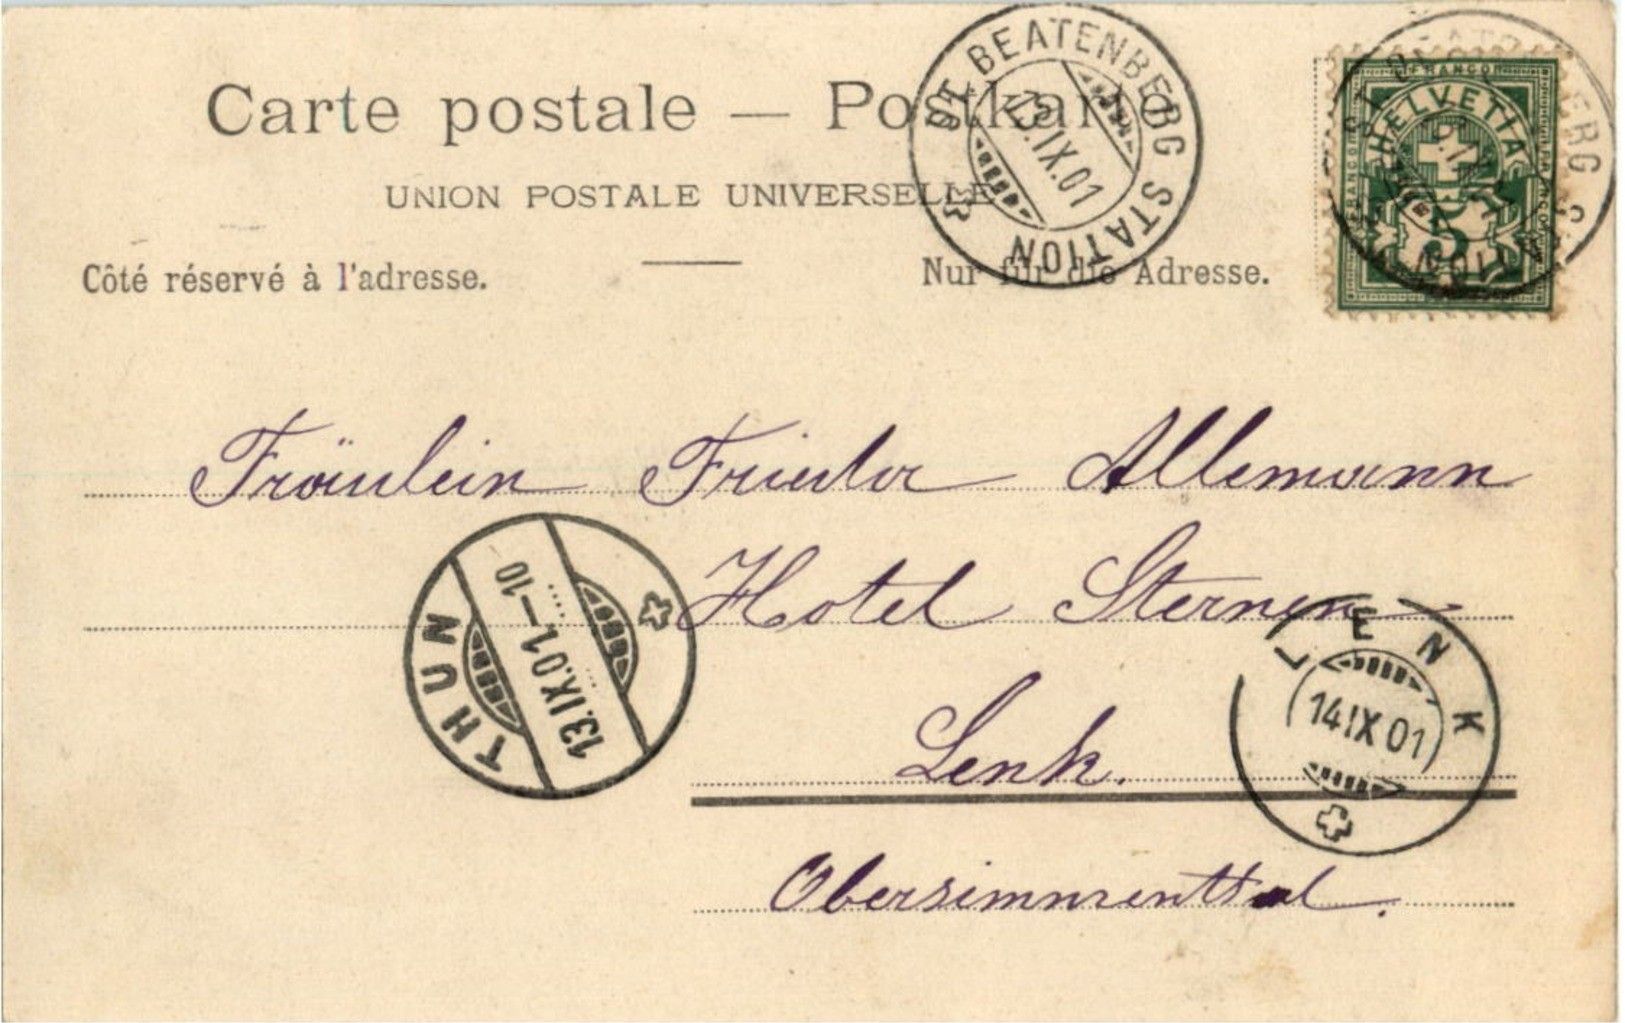 Carte postale — Postkarte
UNION POSTALE UNIVERSELLE
Côté réservé à l'adresse.
Nur für die Adresse.
ST BEATENBERG STATION
13.IX.01
FRANCO
HELVETIA
5
Fräulein Frieda Allemann
Hotel Sternen
Lenk.
Obersimmenthal.
THUN
13.IX.01–10
LENK
14 IX 01